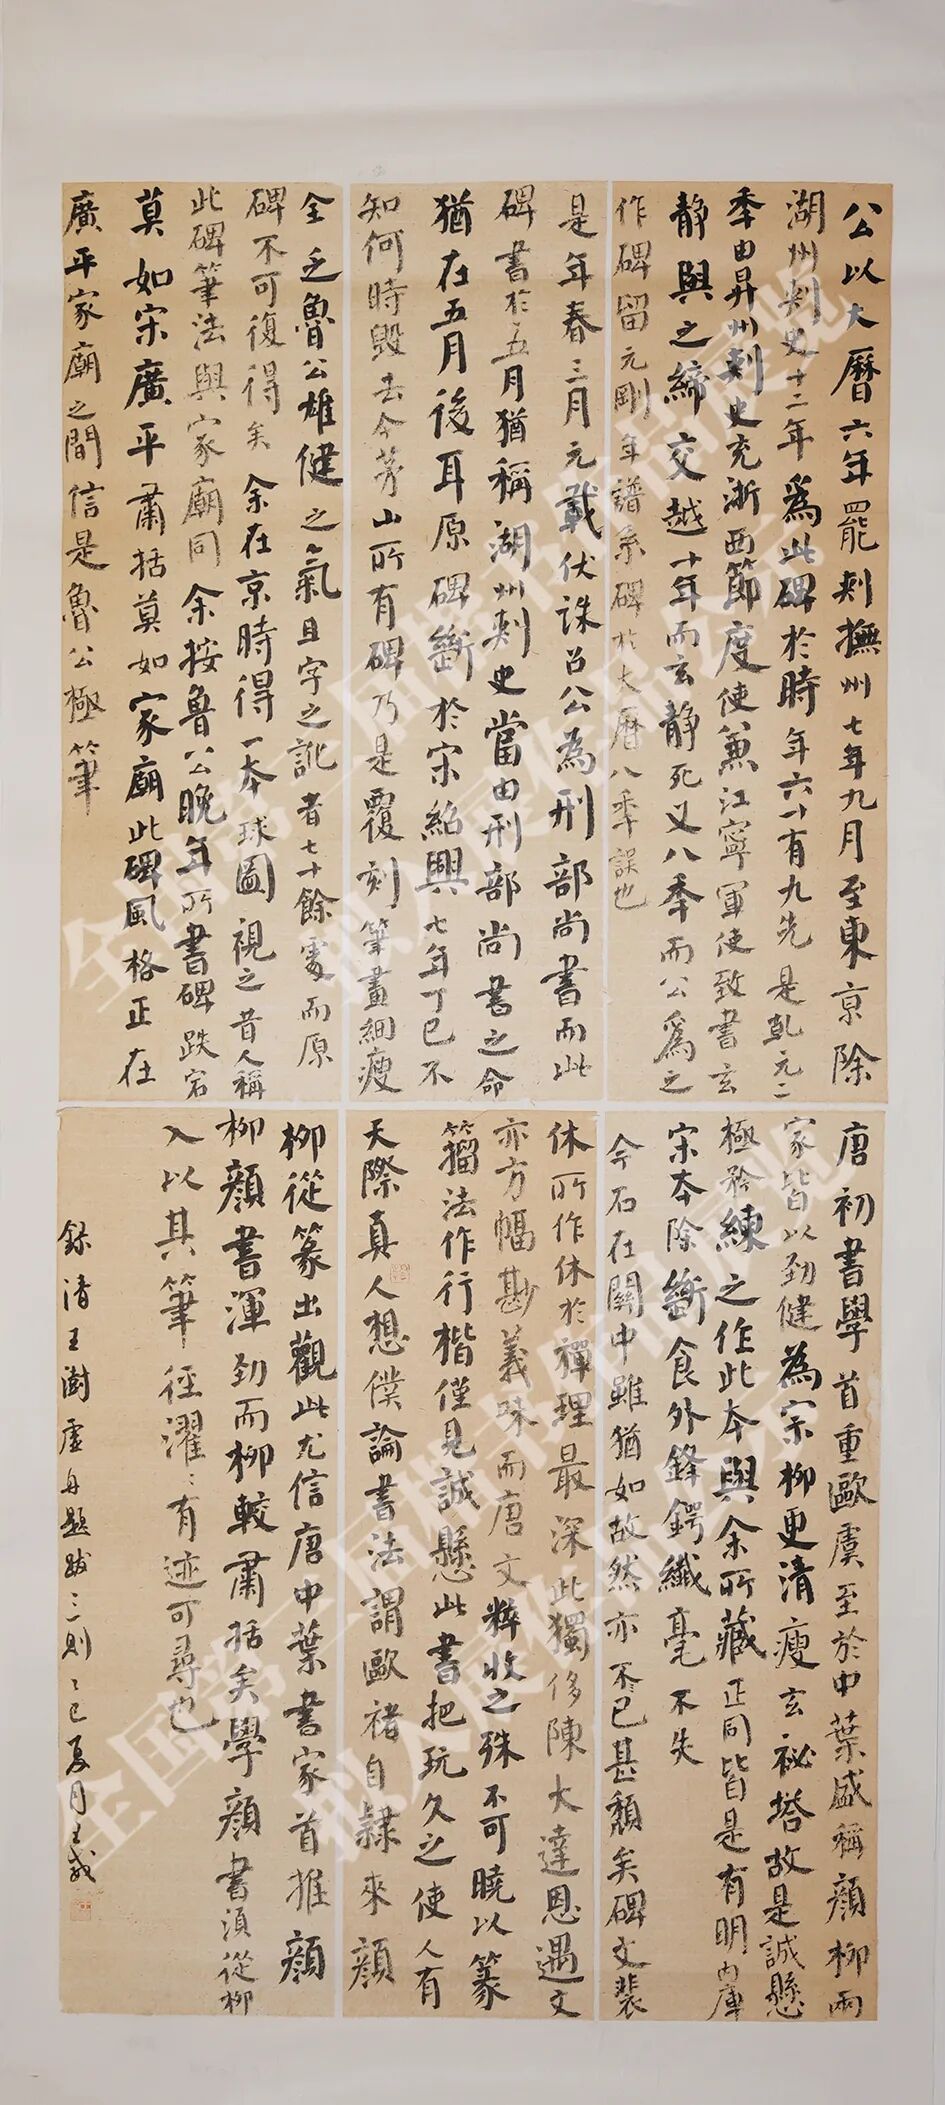 公以大曆六年罷刺撫州七年九月至東京除
湖州刺史十二年為此碑於時年六十有九先是乾元二
季由昇州刺史充浙西節度使兼江寧軍使致書玄
靜與之締交越十年而玄靜死又八季而公為之
作碑留元剛年譜系碑於大曆八季誤也
是年春三月元載伏誅召公為刑部尚書而此
碑書於五月猶稱湖州刺史當由刑部尚書之命
猶在五月後耳原碑斷於宋紹興七年丁巳不
知何時毀去今茅山所有碑乃是覆刻筆畫細瘦
全乏魯公雄健之氣且字之訛者七十餘處而原
碑不可復得矣余在京時得一本球圖視之昔人稱
此碑筆法與家廟同余按魯公晚年所書碑跌宕
莫如宋廣平肅括莫如家廟此碑風格正在
廣平家廟之間信是魯公極筆
唐初書學首重歐虞至於中葉盛稱顏柳兩
家皆以勁健為宗柳更清瘦玄祕塔故是誠懸
極矜練之作此本與余所藏正同皆是有明內庫
宋本除斷食外鋒鍔纖毫不失
今石在關中雖猶如故然亦不已甚頹矣碑文裴
休所作休於禪理最深此獨侈陳大達恩遇文
亦方幅尠義味而唐文粹收之殊不可曉以篆
籀法作行楷僅見誠懸此書把玩久之使人有
天際真人想僕論書法謂歐褚自隸來顏
柳從篆出觀此尤信唐中葉書家首推顏
柳顏書渾勁而柳較肅括矣學顏書須從柳
入以其筆徑濯濯有迹可尋也
錄清王澍虛舟題跋二則乙巳夏月
全国第三届